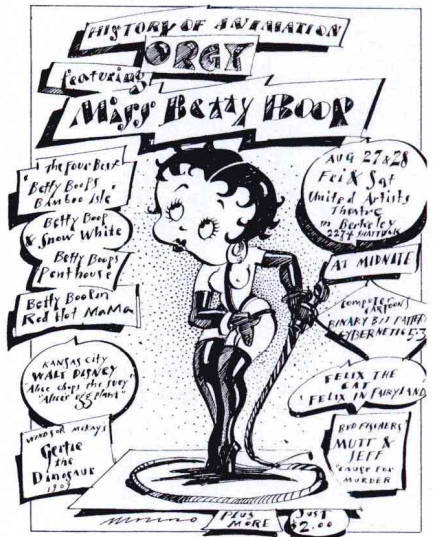 HISTORY OF ANIMATION
ORGY
featuring
Miss Betty Boop
The Four Best
"Betty Boops
Bamboo Isle"
Betty Boop
& Snow White
Betty Boops
Penthouse
Betty Boop in
Red Hot Mama
KANSAS CITY
WALT DISNEY
"Alice chops the Suey"
"Alice's egg plant"
WINDSOR McKAYS
Gertie
the
Dinosaur
1909
AUG 27 & 28
Fri & Sat
United Artists
Theatre
in Berkeley
2274 SHATTUCK
AT MIDNITE
COMPUTER
CARTOONS
BINARY BIT PATTERNS
CYBERNETIC 5.3
FELIX THE
CAT
"FELIX IN FAIRYLAND"
BUD FISCHERS
MUTT &
JEFF
"CAUSE FOR
MURDER
PLUS
MORE
JUST
$2.00